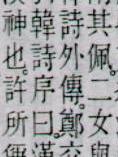 其佩。二女與
詩外傳。鄭交
韓詩序曰。漢
神也。許所